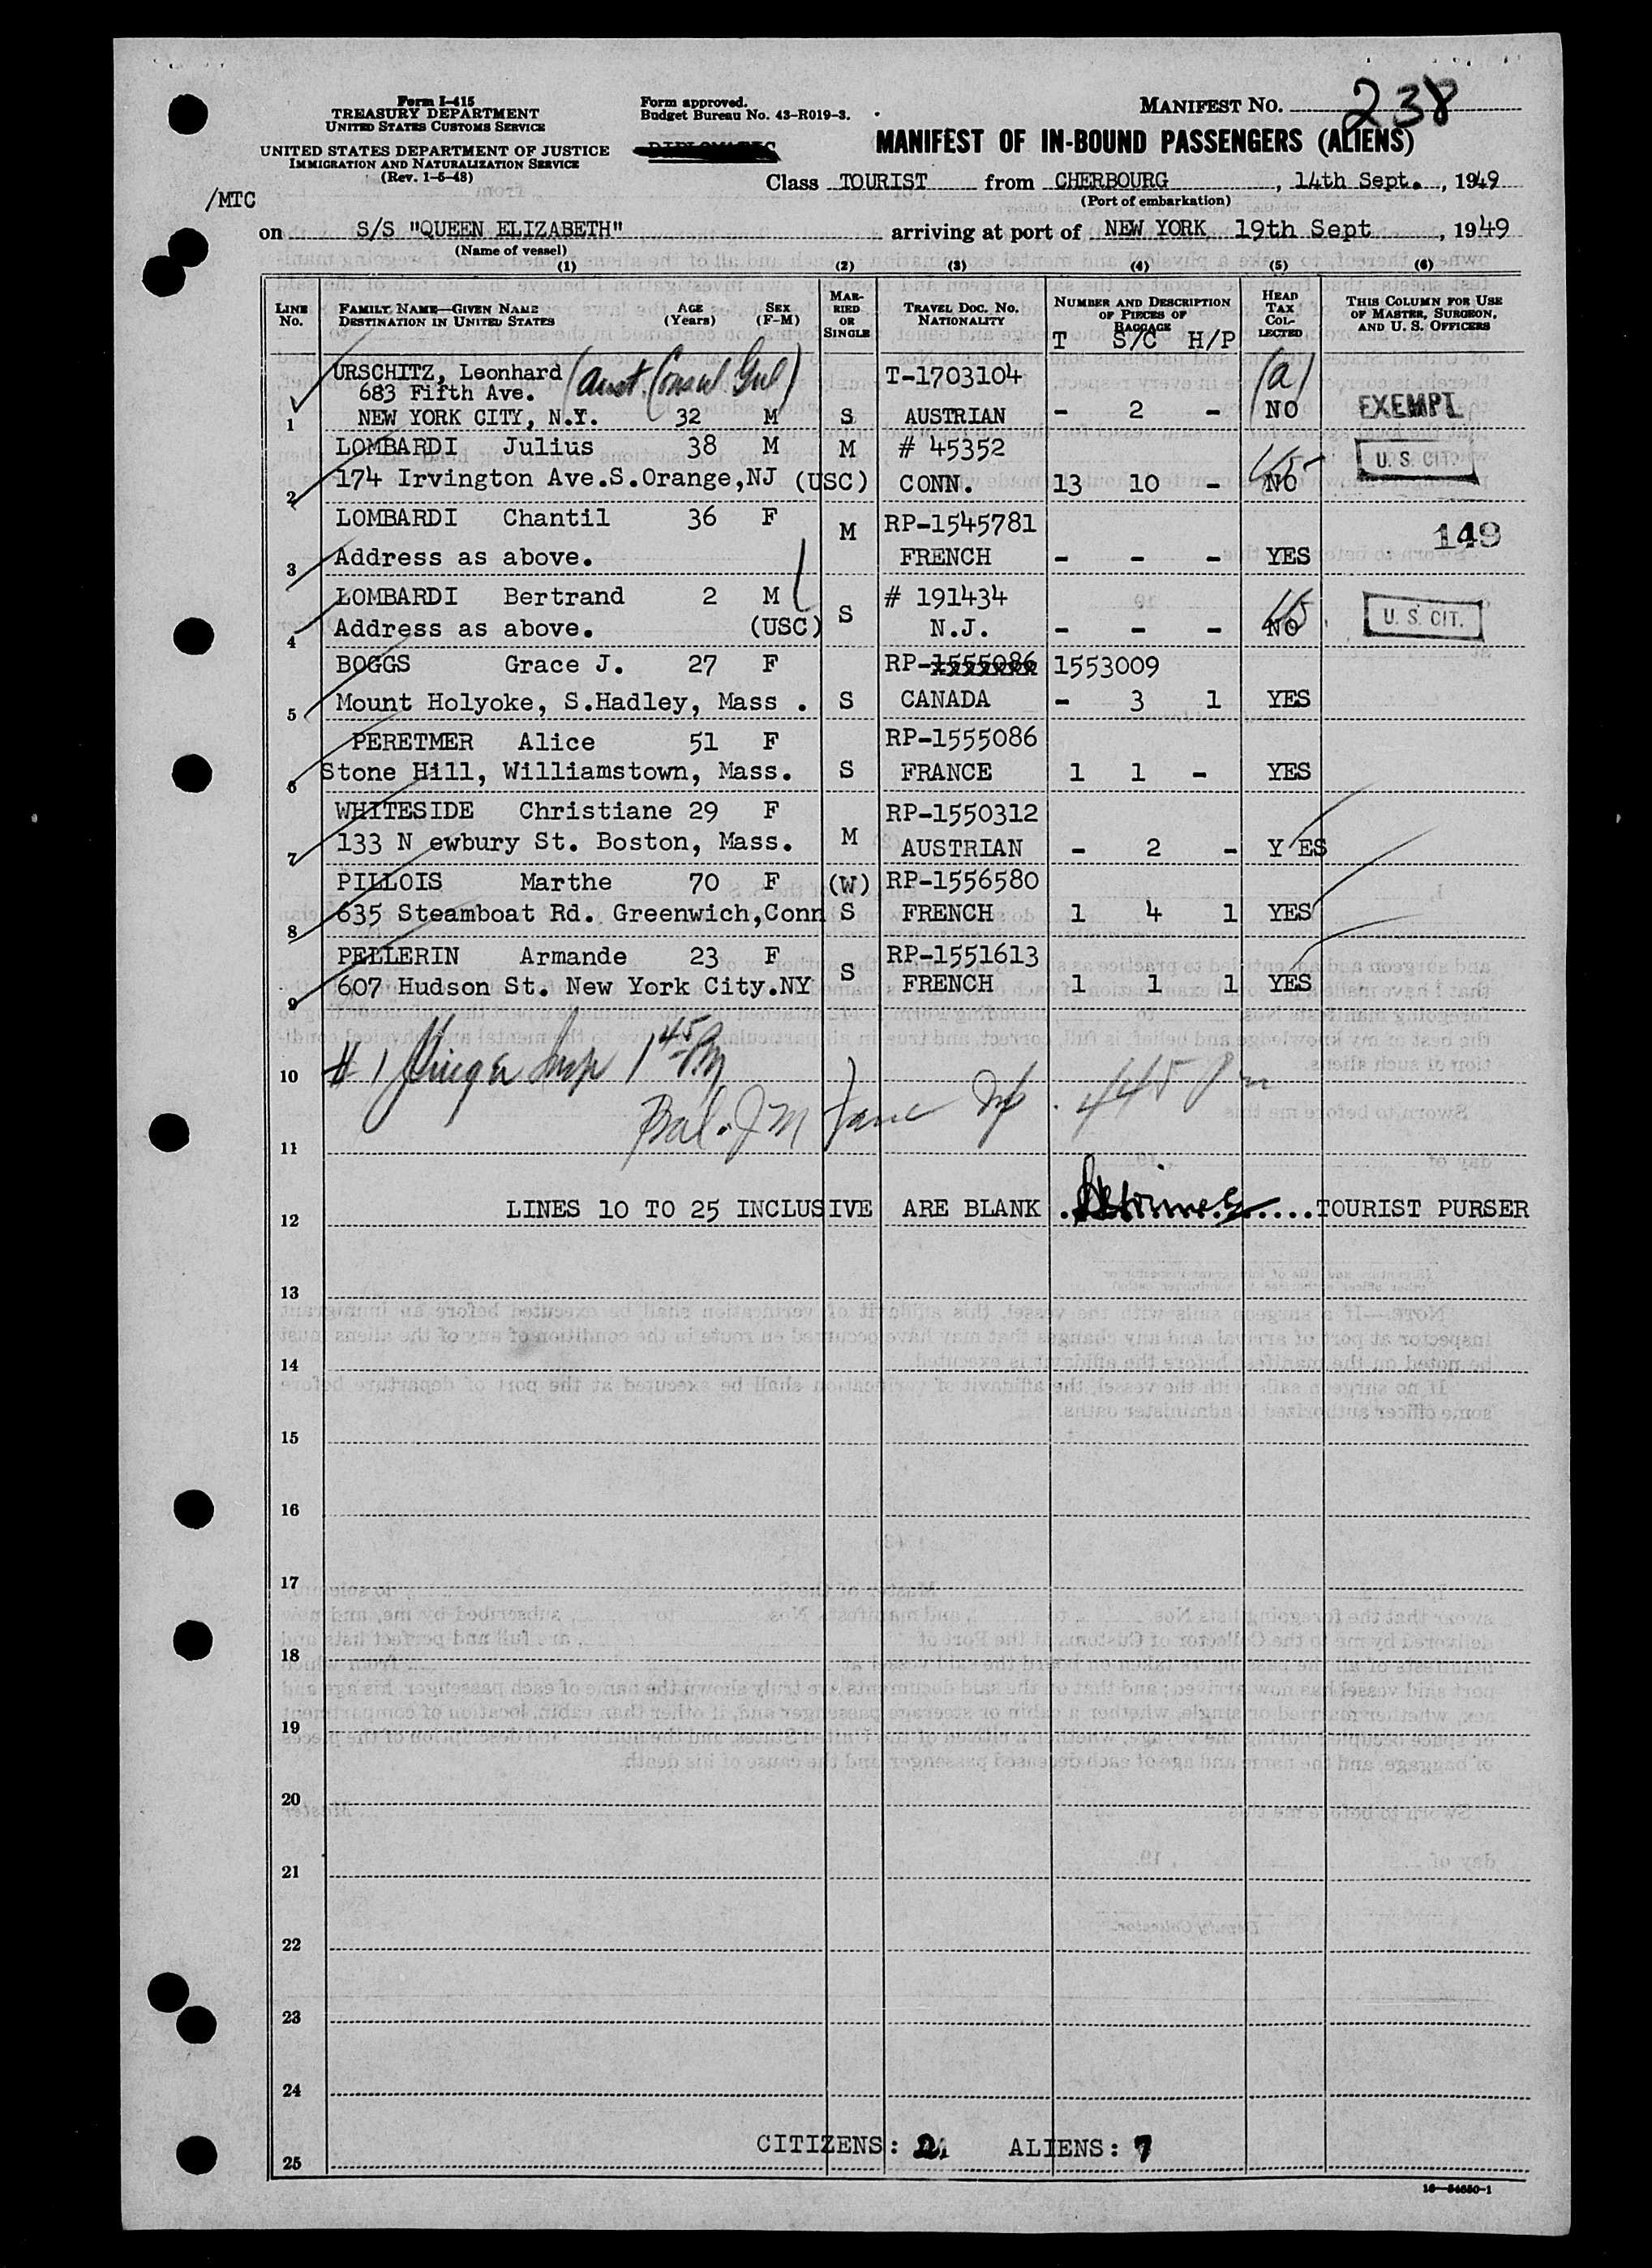 Form I-415
TREASURY DEPARTMENT
UNITED STATES CUSTOMS SERVICE
UNITED STATES DEPARTMENT OF JUSTICE
IMMIGRATION AND NATURALIZATION SERVICE
(Rev. 1-5-48)
Form approved.
Budget Bureau No. 43-R019-3.
MANIFEST NO. 238
MANIFEST OF IN-BOUND PASSENGERS (ALIENS)
/MTC
Class TOURIST from CHERBOURG, 14th Sept., 1949
(Port of embarkation)
on S/S "QUEEN ELIZABETH" arriving at port of NEW YORK 19th Sept, 1949
(Name of vessel)
(1) (2) (3) (4) (5) (6)
LINE No. FAMILY NAME—GIVEN NAME DESTINATION IN UNITED STATES AGE (Years) SEX (F-M) MARRIED OR SINGLE TRAVEL DOC. NO. NATIONALITY NUMBER AND DESCRIPTION OF PIECES OF BAGGAGE HEAD TAX COLLECTED THIS COLUMN FOR USE OF MASTER, SURGEON, AND U. S. OFFICERS
T S/C H/P
URSCHITZ, Leonhard (Aust. Consul Gul) T-1703104 (a)
683 Fifth Ave.
1 NEW YORK CITY, N.Y. 32 M S AUSTRIAN - 2 - NO EXEMPT
LOMBARDI Julius 38 M M # 45352 U. S. CIT.
2 174 Irvington Ave.S.Orange,NJ (USC) CONN. 13 10 - NO
LOMBARDI Chantil 36 F M RP-1545781 149
3 Address as above. FRENCH - - - YES
LOMBARDI Bertrand 2 M S # 191434 U. S. CIT.
4 Address as above. (USC) N.J. - - - NO
BOGGS Grace J. 27 F RP-1555086 1553009
5 Mount Holyoke, S.Hadley, Mass . S CANADA - 3 1 YES
PERETMER Alice 51 F RP-1555086
6 Stone Hill, Williamstown, Mass. S FRANCE 1 1 - YES
WHITESIDE Christiane 29 F RP-1550312
7 133 N ewbury St. Boston, Mass. M AUSTRIAN - 2 - Y ES
PILLOIS Marthe 70 F (W) RP-1556580
8 635 Steamboat Rd. Greenwich,Conn S FRENCH 1 4 1 YES
PELLERIN Armande 23 F RP-1551613
9 607 Hudson St. New York City.NY S FRENCH 1 1 1 YES
10 # 1 Insp 1 45 PM
Bal. J M Insp. 445 Pm
11
12 LINES 10 TO 25 INCLUSIVE ARE BLANK TOURIST PURSER
13
14
15
16
17
18
19
20
21
22
23
24
CITIZENS: 2 ALIENS: 7
25
16—54650-1